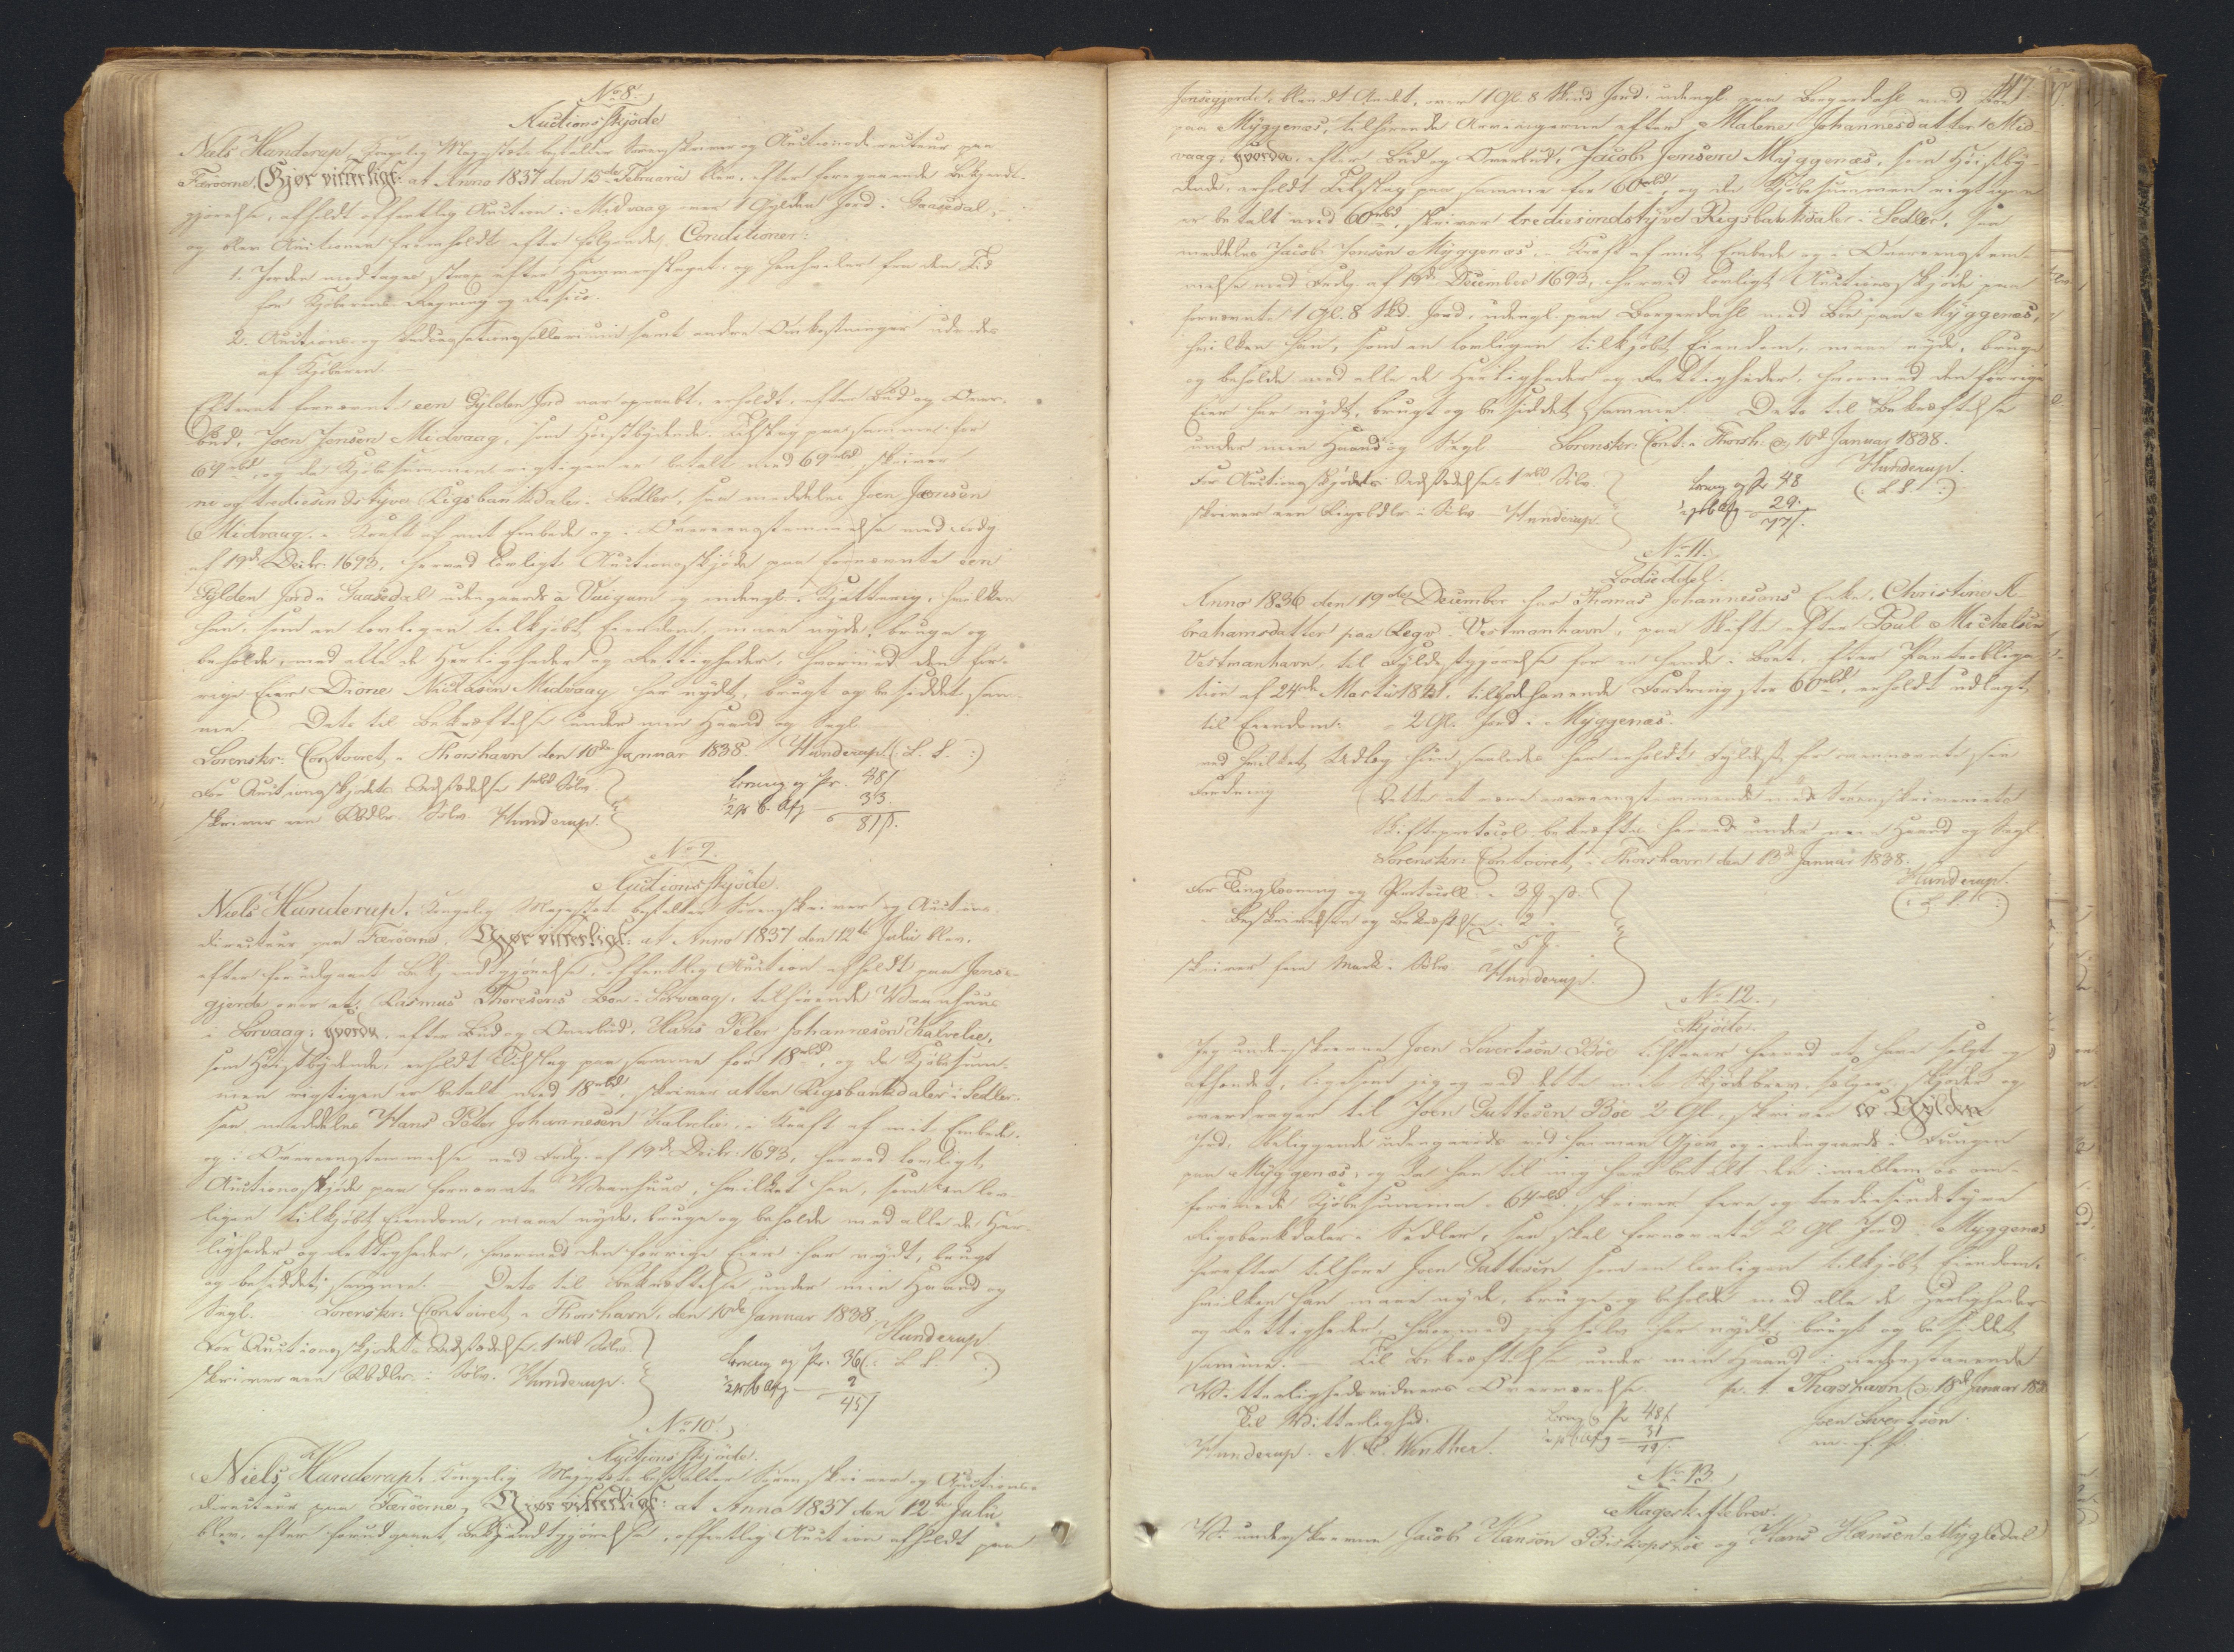 No 8.
Auctionsskjøde
Niels Hunderup, Kongelig Majestæts bestalter Sorenskriver og Auctionsdirecteur paa
Færøerne, Gjør vitterligt: at Anno 1837 den 15de Februarii blev, efter foregaaende Bekjendt-
gjørelse, afholdt offentlig Auction i Midvaag over 1 Gylden Jord i Gaasedal,
og blev Auctionen fremholdt efter følgende Conditioner:
1. Jorden modtages strax efter Hammerslaget, og henhviler fra den Tid
for Kjøberens Regning og Risico.
2. Auctions- og Incassationssallarium samt andre Omkostninger udredes
af Kjøberen.
Efterat fornævnt een Gylden Jord var opraabt, erholdt, efter Bud og Over-
bud, Joen Jensen Midvaag, som Høistbydende, Tilslag paa samme for
69 rbd, og da Kjøbesummen rigtigen er betalt med 69 rbd, skriver
ni og trediesindstyve Rigsbankdaler Sedler, saa meddeles Joen Joensen
Midvaag, i Kraft af mit Embede og i Overeensstemmelse med Frdg.
af 19de Decbr. 1693, herved lovligt Auctionsskjøde paa fornævnte een
Gylden Jord i Gaasedal udengaards a Vuigam og indengds. i Kjetterey, hvilken
han, som en lovligen tilkjøbt Eiendom, maae nyde, bruge og
beholde, med alle de Herligheder og Rettigheder, hvormed den for-
rige Eier Dione Niclasen Midvaag har nydt, brugt og besiddet sam-
me. Dets til Bekræftelse under min Haand og Segl.
Sorenskr: Contoiret i Thorshavn den 10de Januar 1838 Hunderup (L. S.:)
For Auctionsskjødets Udstædelse 1 rbd Sølv
skriver een Rbdlr. Sølv. Hunderup.
Læsning og Pr. 48 ß
½ pC. Afg - 33
81 ß.
No 9.
Auctionsskjøde.
Niels Hunderup, Kongelig Majestæts bestalter Sorenskriver og Auctions-
directeur paa Færøerne, Gjør vitterligt: at Anno 1837 den 12te Julii blev,
efter forudgaaet Bekjendtgjørelse, offentlig Auction afholdt paa Jens-
gjerde over et, Rasmus Thoresens Boe i Sørvaag, tilhørende Vaanhuus
i Sørvaag; hvorda, efter Bud og Overbud, Hans Peter Johannesen Kalvelie,
som Høistbydende, erholdt Tilslag paa samme for 18 rbd, og da Kjøbesum-
men rigtigen er betalt med 18 rbd, skriver atten Rigsbankdaler i Sedler,
saa meddeles Hans Peter Johannesen Kalvelie, i Kraft af mit Embede
og i Overeensstemmelse med Frdg. af 19de Decbr. 1693, herved lovligt
Auctionsskjøde paa fornævnte Vaanhuus, hvilket han, som en lov-
ligen tilkjøbt Eiendom, maae nyde, bruge og beholde med alle de Her-
ligheder og Rettigheder, hvormed den forrige Eier har nydt, brugt
og besiddet samme. Dets til Bekræftelse under min Haand og
Segl. Sorenskr: Contoiret i Thorshavn, den 10de Januar 1838
Hunderup
(: L. S. :)
For Auctionsskjødets Udstædelse 1 rbd Sølv.
skriver een Rbdlr. i Sølv. Hunderup.
Læsning og Pr. 36
½ pC Afg - 9
45 ß
No 10.
Auctionsskjøde.
Niels Hunderup, Kongelig Majestæts bestalter Sorenskriver og Auctions-
directeur paa Færøerne, Gjør vitterligt: at Anno 1837 den 12te Julii
blev, efter forudgaaet Bekjendtgjørelse, offentlig Auction afholdt paa
117
Jensegjerde, blandt Andet, over 1 Gl. 8 Skind Jord, udengl. paa Borgerdahl med Bøe
paa Myggenæs, tilhørende Arvingerne efter Malene Johannesdatter Mid-
vaag, hvorda, efter Bud og Overbud, Jacob Jensen Myggenæs, som Høistby-
dende, erholdt Tilslag paa samme for 60 rbd, og da Kjøbesummen rigtigen
er betalt med 60 rbd, skriver trediesindstyve Rigsbankdaler i Sedler, saa
meddeles Jacob Jensen Myggenæs, i Kraft af mit Embede og i Overeensstem-
melse med Frdg. af 19de December 1693, herved lovligt Auctionsskjøde paa
fornævnte 1 Gl. 8 Skd. Jord, udengl. paa Borgerdahl med Bøe paa Myggenæs,
hvilken han, som en lovligen tilkjøbt Eiendom, maae nyde, bruge
og beholde med alle de Herligheder og Rettigheder, hvormed den forrige
Eier har nydt, brugt og besiddet samme. Dets til Bekræftelse
under min Haand og Segl. Sorenskr: Cont: i Thorsh: d. 10de Januar 1838.
Hunderup.
(: L. S. :)
For Auctionsskjødets Udstædelse 1 rbd Sølv.
skriver een Rigsbdlr. i Sølv. Hunderup.
Læsning og Pr 48
½ pC Afg - 29
77 ß.
No 11.
Lodseddel.
Anno 1836 den 19de December har Thomas Johannesens Enke, Christine A-
brahamsdatter paa Legv. Vestmanhavn, paa Skifte efter Poul Michelsen
Vestmanhavn, til Fyldestgjørelse for en hende i Boet, efter Panteobliga-
tion af 24de Martii 1821, tilgodehavende Fordring stor 60 rbd, erholdt udlagt
til Eiendom: 2 Gl. Jord i Myggenæs.
ved hvilket Udlæg hun saaledes har erholdt Fyldest for ovennævnte sin
Fordring. Dette at være overeensstemmende med Sorenskriveriets
Skifteprotocol, bekræftes herved under min Haand og Segl.
Sorenskr: Contoiret i Thorshavn den 13de Januar 1838.
Hunderup.
(: L. S. :)
For Tinglæsning og Protocoll. - 3 ß.
- Beskrivelsen og Bekræftelsen - 2 -
5 ß.
skriver fem Mark i Sølv Hunderup.
No 12.
Skjøde.
Jeg underskrevne Joen Sivertsen Bøe tilstaaer herved at have solgt og
afhændet, ligesom jeg og ved dette mit Skjødebrev sælger, skjøder og
overdrager til Joen Guttesen Bøe 2 Gl., skriver to Gylden
Jord, beliggende udengaards ved Gjov og indengaards i Dungen
paa Myggenæs; og da han til mig har betalt den imellem os om-
forenede Kjøbesumma 64 rbd. skriver fire og trediesindstyve
Rigsbankdaler i Sedler, saa skal fornævnte 2 Gl. Jord i Myggenæs
herefter tilhøre Joen Guttesen som en lovligen tilkjøbt Eiendom,
hvilken han maae nyde, bruge og beholde med alle de Herligheder
og Rettigheder, hvormed jeg selv har nydt, brugt og besiddet
samme. Til Bekræftelse under min Haand i nedenstaaende
Vitterlighedsvidners Overværelse. p. t. Thorshavn d. 18de Januar 1838
Til Vitterlighed: Joen Sivertsen
Hunderup. N. C. Winther. m. f. P.
Læsng og Pr 48 ß
½ pC Afg - 31
79 ß.
No 13.
Mageskiftebrev.
Vi underskrevne Jacob Hansen Biskopstøe og Hans Hansen Mygledal